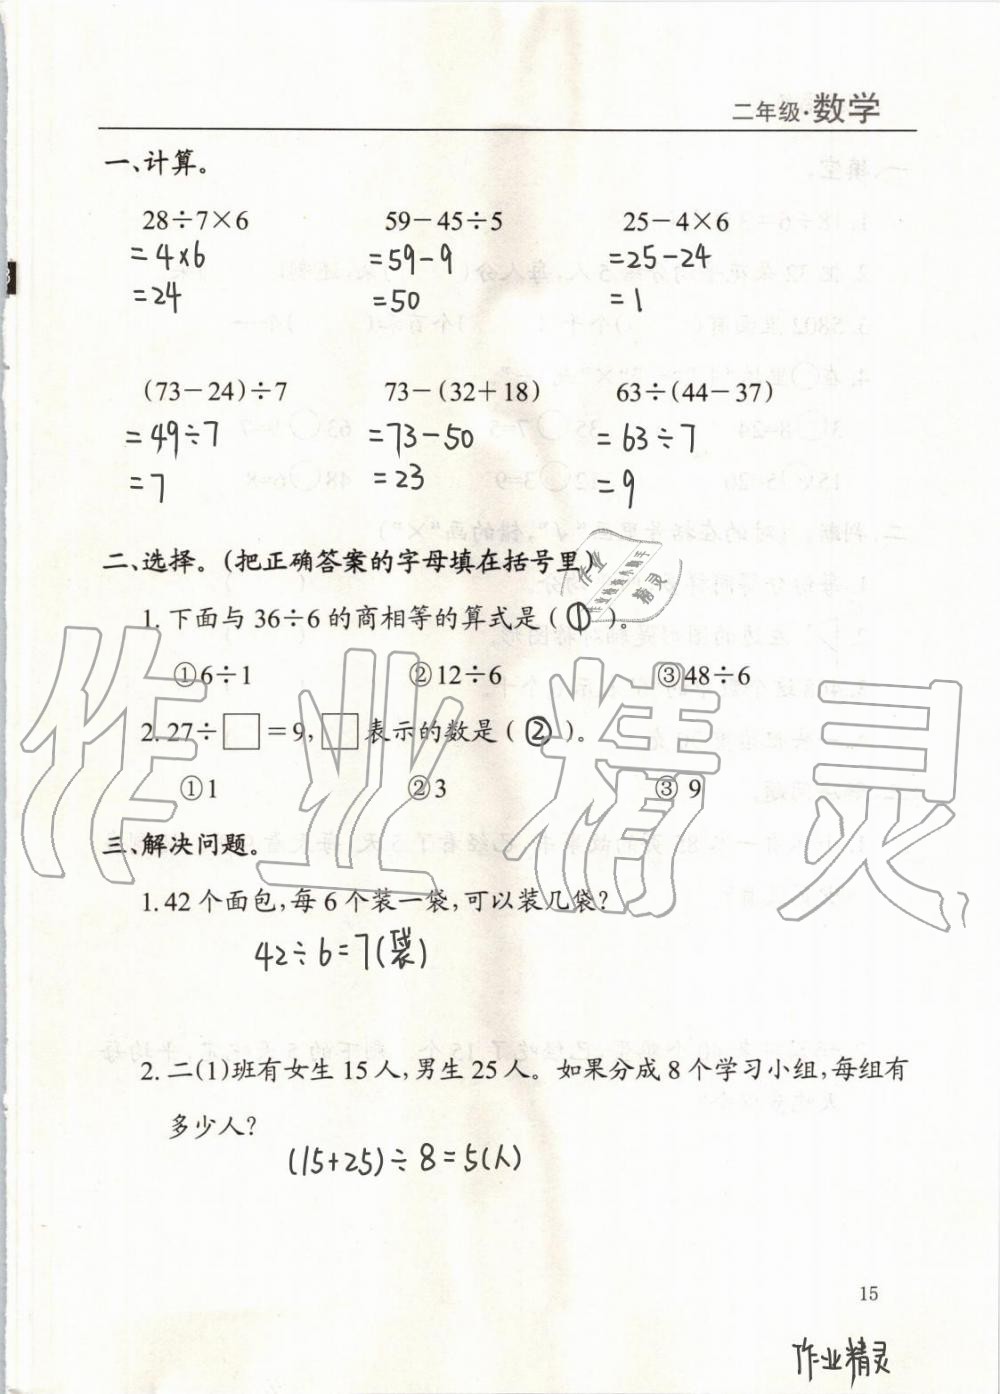 二年级·数学
一、计算。
28÷7×6 59-45÷5 25-4×6
=4×6 =59-9 =25-24
=24 =50 =1
(73-24)÷7 73-(32+18) 63÷(44-37)
=49÷7 =73-50 =63÷7
=7 =23 =9
二、选择。(把正确答案的字母填在括号里)
1. 下面与 36÷6 的商相等的算式是( ① )。
①6÷1 ②12÷6 ③48÷6
2. 27÷□=9,□表示的数是( ② )。
①1 ②3 ③ 9
三、解决问题。
1. 42 个面包,每 6 个装一袋,可以装几袋?
42÷6=7(袋)
2. 二(1)班有女生 15 人,男生 25 人。如果分成 8 个学习小组,每组有
多少人?
(15+25)÷8=5(人)
15
作业精灵
作业精灵